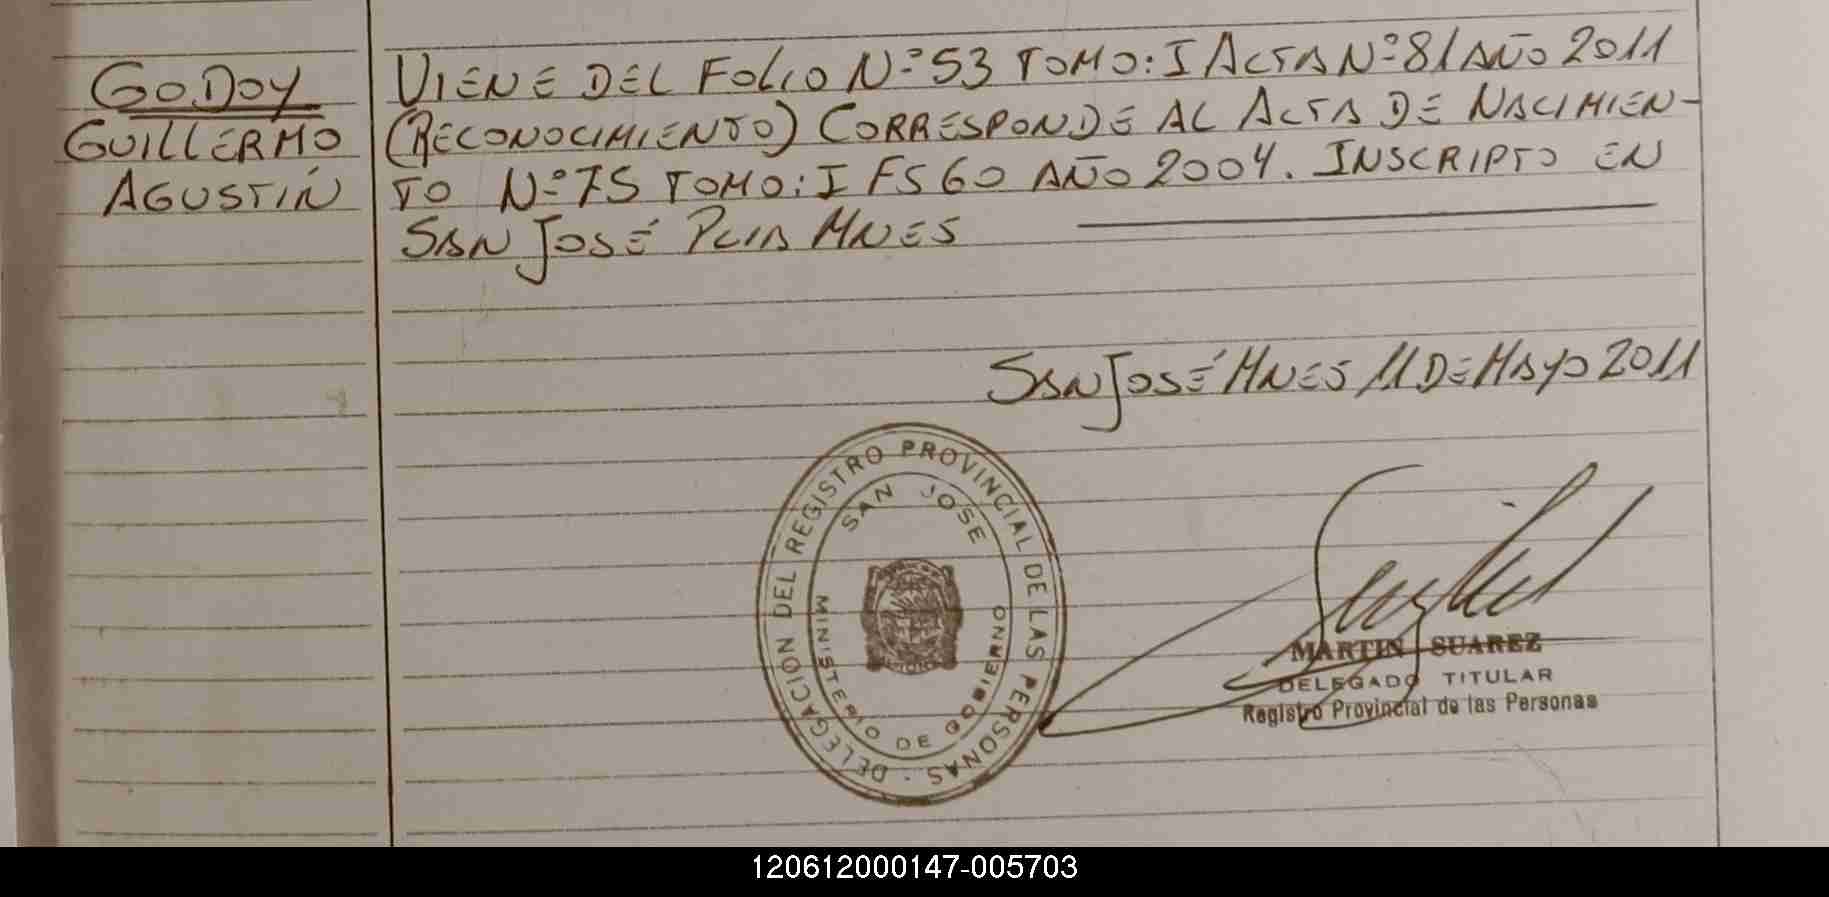 GODOY
GUILLERMO
AGUSTÍN
VIENE DEL FOLIO Nº 53 TOMO: I ACTA Nº 81 AÑO 2011
(RECONOCIMIENTO) CORRESPONDE AL ACTA DE NACIMIEN-
TO Nº 75 TOMO: I FS 60 AÑO 2004. INSCRIPTO EN
SAN JOSÉ PCIA MNES
SAN JOSÉ MNES 11 DE MAYO 2011
DELEGACION DEL REGISTRO PROVINCIAL DE LAS PERSONAS -
SAN JOSE
MINISTERIO DE GOBIERNO
MARTIN SUAREZ
DELEGADO TITULAR
Registro Provincial de las Personas
120612000147-005703